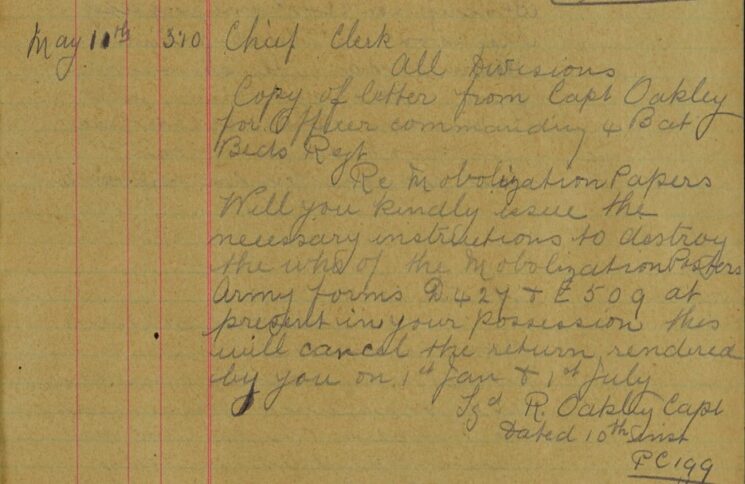 May 11th 310 Chief Clerk
All Divisions
Copy of letter from Capt Oakley
for Officer commanding 4 Bat
Beds Regt
Re Mobolization Papers
Will you kindly issue the
necessary instructions to destroy
the whole of the Mobolization Posters
Army forms D 427 & E 509 at
present in your possession this
will cancel the return rendered
by you on 1st Jan & 1st July
Sgd R. Oakley Capt
Dated 10th inst
PC 199